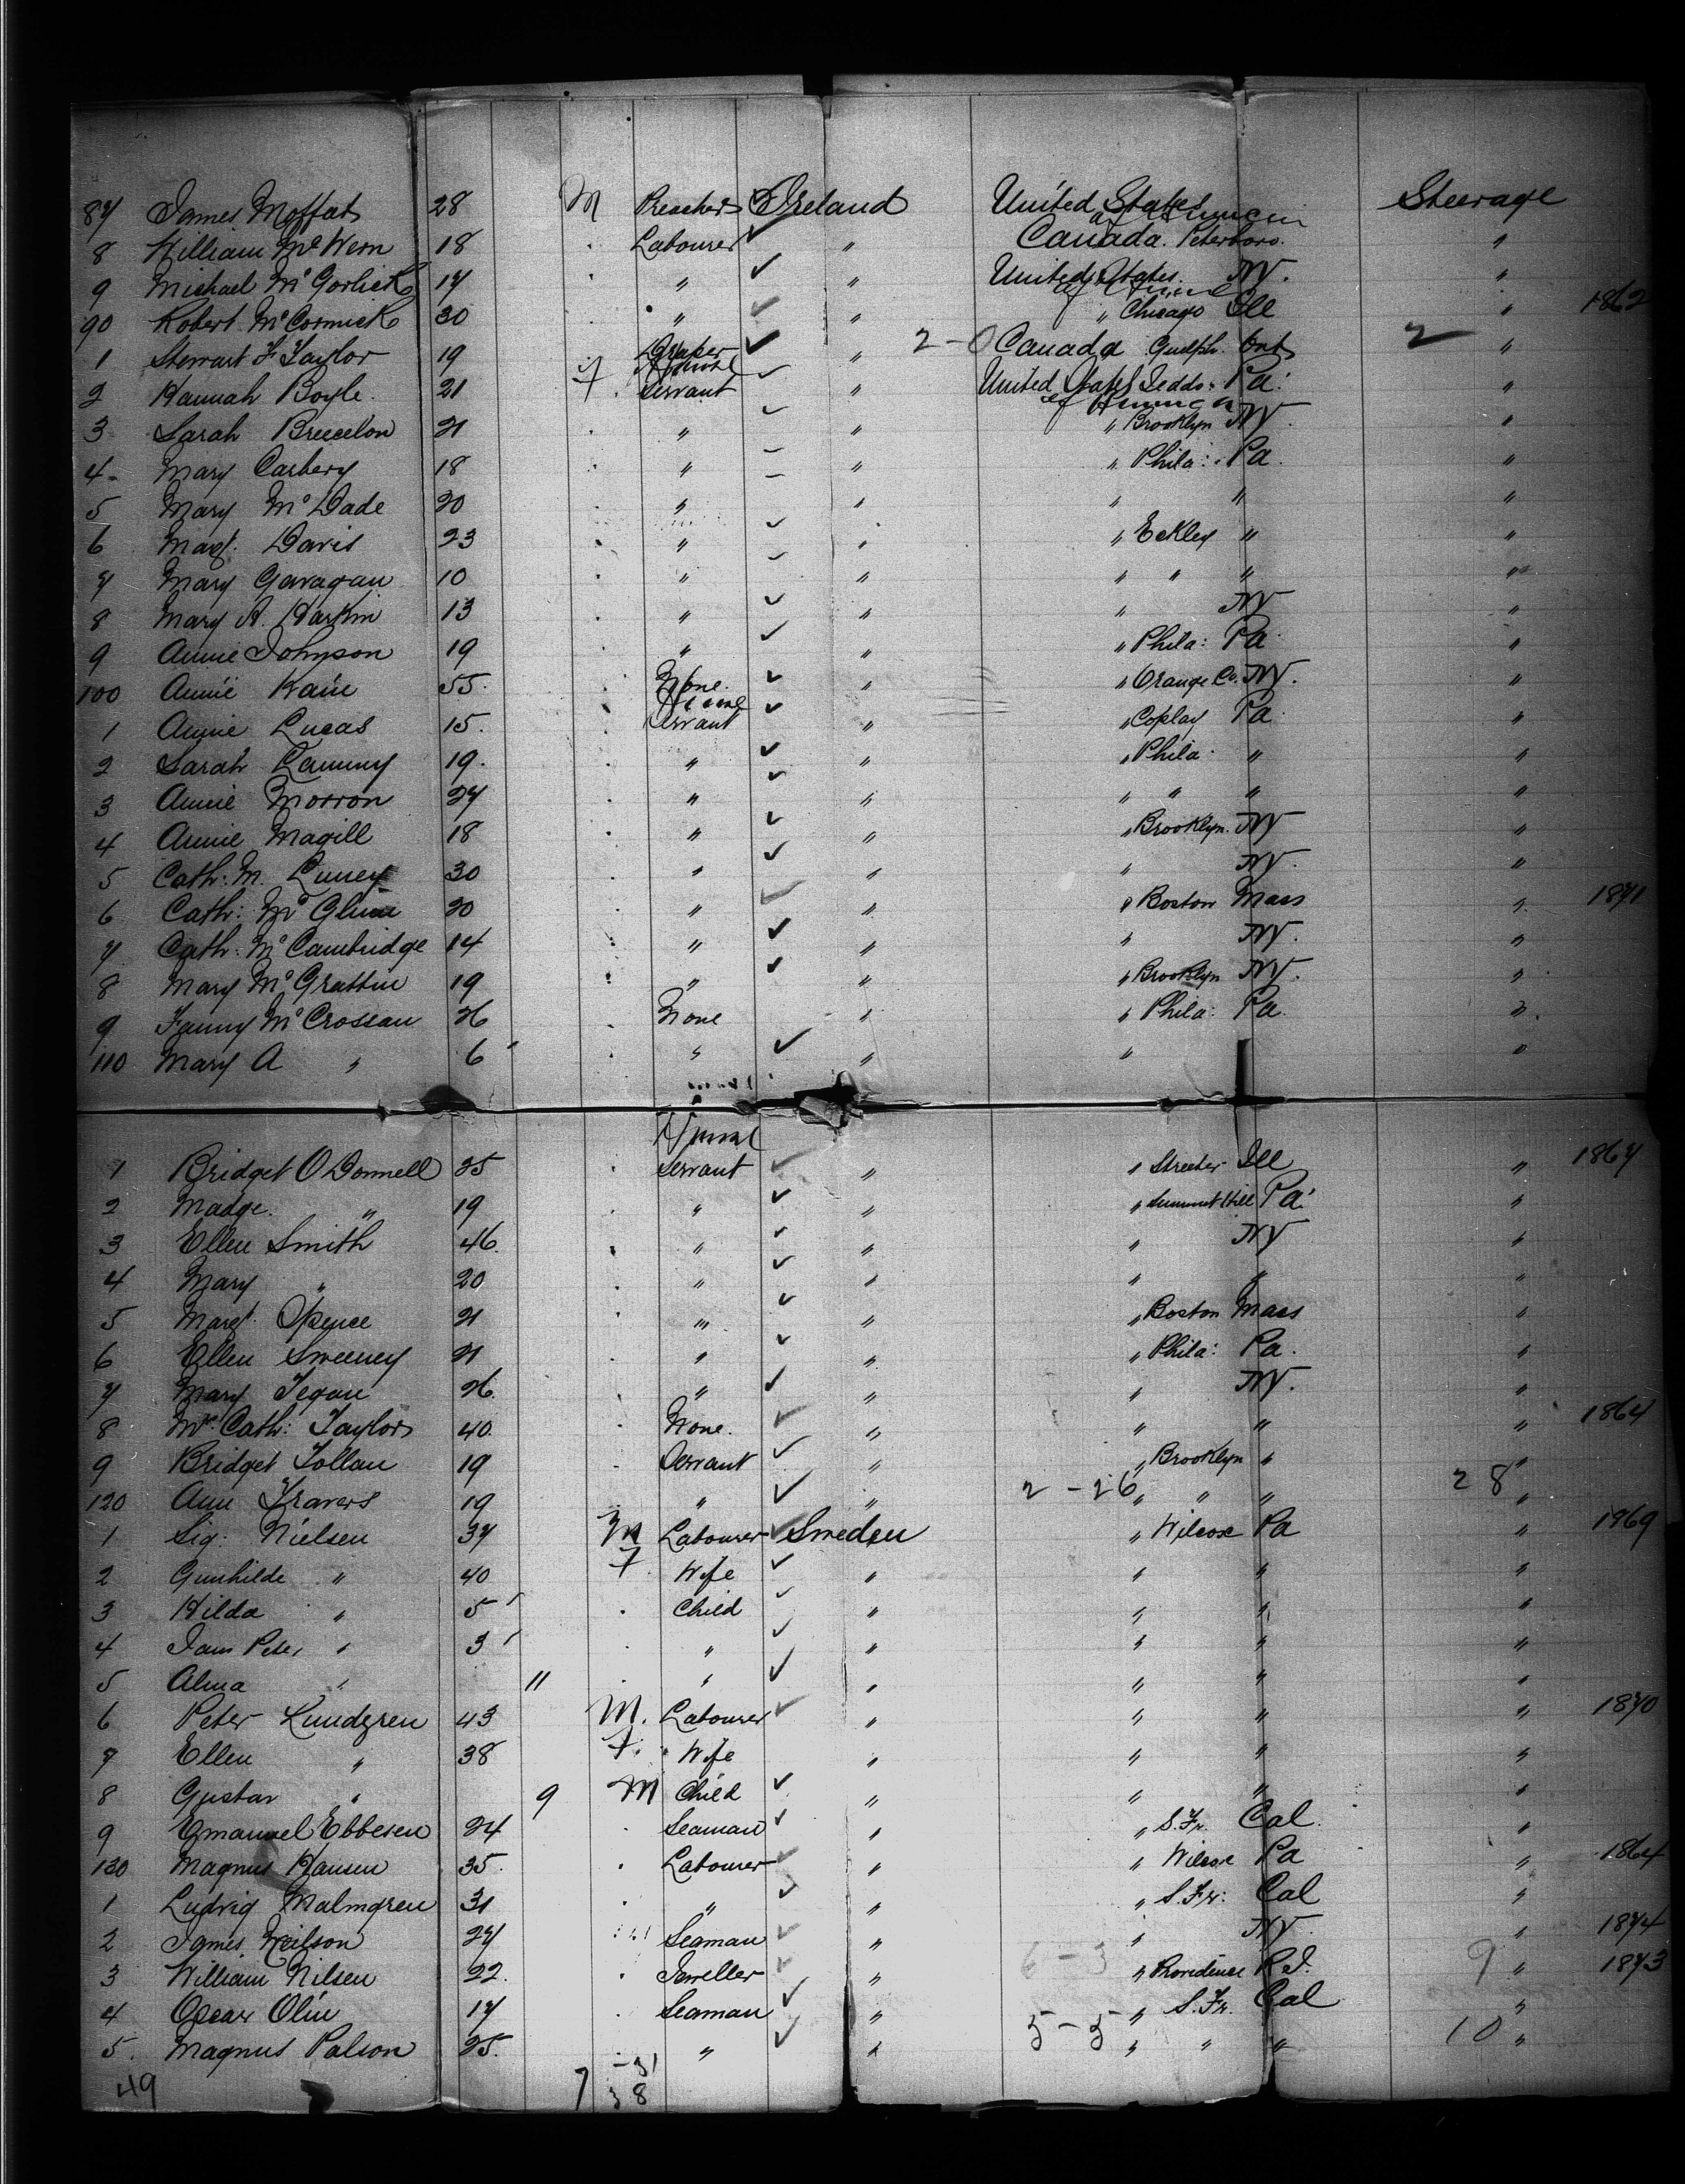 87 James Moffat 28 M Preacher Ireland United States of America Steerage
8 William McWern 18 Labourer " Canada. Peterboro. "
9 Michael McGorlick 17 " " United States of America NY. "
90 Robert McCormick 30 " " " Chicago Ill " 1862
1 Stewart F Taylor 19 Draper " 2-0 Canada Guelph. Ont 2 "
2 Hannah Boyle. 21 f Servant " United States of America Jeddo Pa. "
3 Sarah Breeelon 21 " " " Brooklyn NY. "
4 Mary Carbery 18 " " " Phila: Pa. "
5 Mary McDade 20 " " " " "
6 Magt. Davis 23 " " " Eckley " "
7 Mary Gavagan 10 " " " " " "
8 Mary A. Harkin 13 " " " NY "
9 Annie Johnson 19 " " " Phila: Pa. "
100 Annie Kain 55. None. " " Orange Co. NY. "
1 Annie Lucas 15. Servant " " Coplay Pa "
2 Sarah Lammy 19. " " " Phila. " "
3 Annie Morron 27 " " " " " "
4 Annie Magill 18 " " " Brooklyn. NY "
5 Cath: M. Luney 30 " " " NY. "
6 Cath: McGlure 20 " " " Boston Mass " 1871
7 Cath: McCambridge 14 " " " NY. "
8 Mary McGrattin 19 " " " Brooklyn NY. "
9 Fanny McCrossan 26 None " " Phila: Pa. "
110 Mary A " 6 " " " "
1 Bridget ODonnell 25 Servant " " Streeter Ill " 1867
2 Madge. " 19 " " " Summit Hill Pa. "
3 Ellen Smith 46. " " " NY "
4 Mary " 20 " " " " "
5 Margt. Spence 21 " " " Boston Mass "
6 Ellen Sweeney 21 " " " Phila: Pa. "
7 Mary Tegan 26. " " " NY. "
8 Mrs. Cath: Taylor 40. None. " " " " 1864
9 Bridget Tollan 19 Servant " " Brooklyn " "
120 Ann Travers 19 " " 2-26 " " " 28 "
1 Sig: Nielsen 37 M Labourer Sweden " Wilcox Pa " 1969
2 Gunhilde " 40 f Wife " " " "
3 Hilda " 5 Child " " " "
4 Jans Peter " 3 " " " " "
5 Alma " 11 " " " " "
6 Peter Lundgren 43 M. Labourer " " " " 1870
7 Ellen " 38 f. Wife " " " "
8 Gustav " 9 M Child " " " "
9 Emanuel Ebbesen 24 Seaman " " S. Fr. Cal. "
130 Magnus Hansen 35. Labourer " " Wilcox Pa " 1864
1 Ludvig Malmgren 31 " " " S. Fr: Cal "
2 James Neilson 27 Seaman " " NY. " 1874
3 William Nilsen 22. Jeweller " 6-3 " Providence R.I. 9 " 1873
4 Oscar Olin 17 Seaman " " S. Fr. Cal "
5. Magnus Palson 25. " " 5-5 " " " 10 "
49 7 -31
38